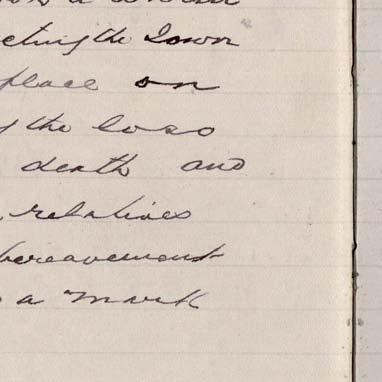 the Town
place on
the loss
death and
relatives
bereavement
a mark